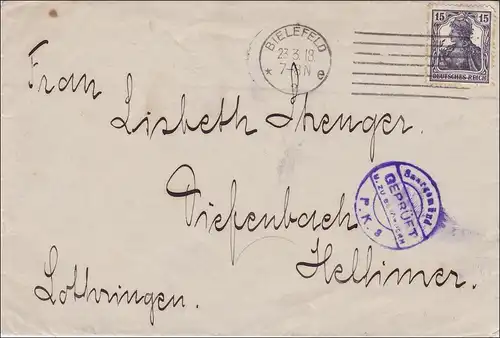 BIELEFELD
23.3.18.
7-8 N
* e
15 15
DEUTSCHES REICH
Frau
Lisbeth Thenger.
Saargemünd
GEPRÜFT
P.K.
Tiefenbach
Hellimer.
Lothringen.